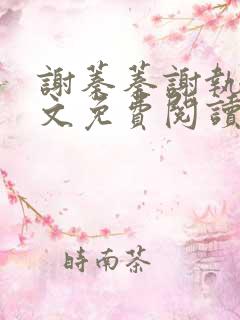 謝蓁蓁謝執
文免費閱讀
時南茶